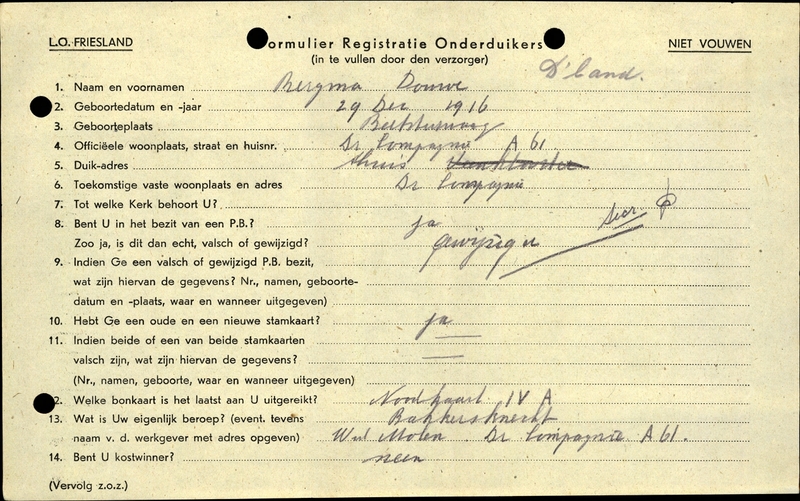 L.O. FRIESLAND
ormulier Registratie Onderduikers
NIET VOUWEN
(in te vullen door den verzorger)
D'land.
1. Naam en voornamen Bergma Douwe
2. Geboortedatum en -jaar 29 Dec 1916
3. Geboorteplaats
4. Officiëele woonplaats, straat en huisnr. Dr Compagnie A 61
5. Duik-adres thuis
6. Toekomstige vaste woonplaats en adres Dr Compagnie
7. Tot welke Kerk behoort U?
8. Bent U in het bezit van een P.B.? ja
Zoo ja, is dit dan echt, valsch of gewijzigd?
9. Indien Ge een valsch of gewijzigd P.B. bezit,
wat zijn hiervan de gegevens? Nr., namen, geboorte-
datum en -plaats, waar en wanneer uitgegeven)
10. Hebt Ge een oude en een nieuwe stamkaart? ja
11. Indien beide of een van beide stamkaarten
valsch zijn, wat zijn hiervan de gegevens?
(Nr., namen, geboorte, waar en wanneer uitgegeven)
2. Welke bonkaart is het laatst aan U uitgereikt? Noodkaart IV A
13. Wat is Uw eigenlijk beroep? (event. tevens Bakkersknecht
naam v. d. werkgever met adres opgeven) Molen Dr Compagnie A 61.
14. Bent U kostwinner? neen
(Vervolg z.o.z.)